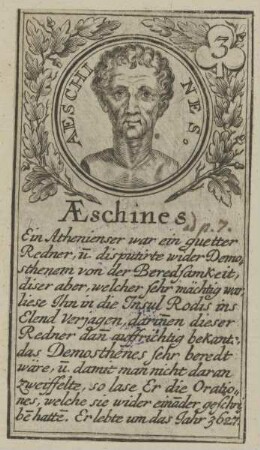 AESCHI
NES.
3
Æschines
p. 7.
Ein Athenienser war ein guetter
Redner, ū disputirte wider Demo,
sthenem von der Beredsamkeit,
diser aber, welcher sehr mächtig war,
liese Ihn in die Insul Rodis ins
Elend Verjagen, darinen dieser
Redner dan auffrichtig bekante
das Demosthenes sehr beredt
wäre, ū damit man nicht daran
zweiffelte, so lase Er die Oratio,
nes, welche sie wider einader geschri
bē hattē. Er lebte um das Jahr 3627.